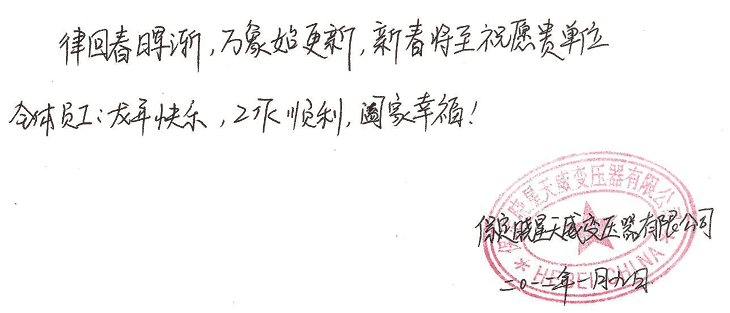 律回春晖渐，万象始更新，新春将至祝愿贵单位
全体员工：龙年快乐，工作顺利，阖家幸福！
保定晓星天威变压器有限公司
保定晓星天威变压器有限公司
HEBEI CHINA
二〇一二年一月九日